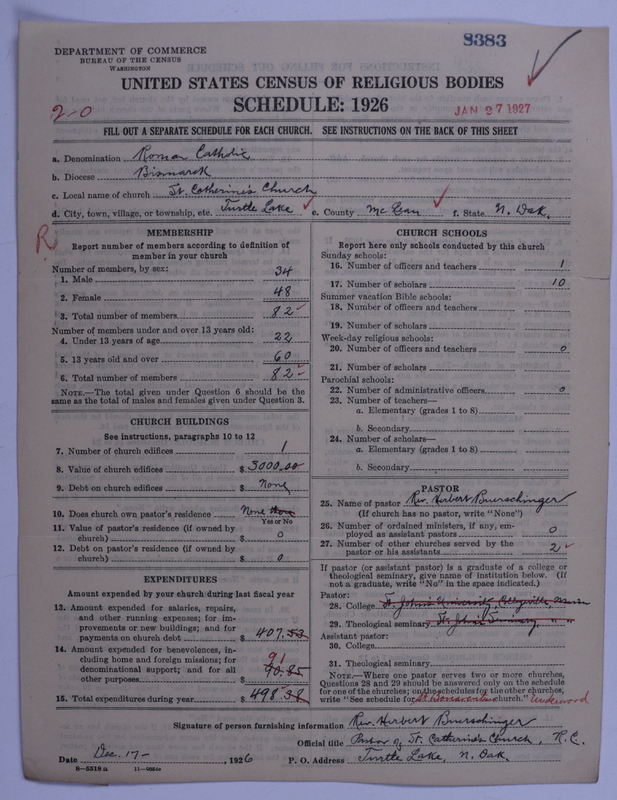 8383
DEPARTMENT OF COMMERCE
BUREAU OF THE CENSUS
WASHINGTON
UNITED STATES CENSUS OF RELIGIOUS BODIES
SCHEDULE: 1926
2-0
JAN 27 1927
FILL OUT A SEPARATE SCHEDULE FOR EACH CHURCH. SEE INSTRUCTIONS ON THE BACK OF THIS SHEET
a. Denomination Roman Catholic
b. Diocese Bismarck
c. Local name of church St. Catherine's Church
d. City, town, village, or township, etc. Turtle Lake e. County McLean f. State N. Dak.
R
MEMBERSHIP
Report number of members according to definition of
member in your church
Number of members, by sex:
1. Male 34
2. Female 48
3. Total number of members 82
Number of members under and over 13 years old:
4. Under 13 years of age 22
5. 13 years old and over 60
6. Total number of members 82
NOTE.—The total given under Question 6 should be the
same as the total of males and females given under Question 3.
CHURCH BUILDINGS
See instructions, paragraphs 10 to 12
7. Number of church edifices 1
8. Value of church edifices $ 3000.00
9. Debt on church edifices $ None
10. Does church own pastor's residence None
Yes or No
11. Value of pastor's residence (if owned by
church) $ 0
12. Debt on pastor's residence (if owned by
church) $ 0
EXPENDITURES
Amount expended by your church during last fiscal year
13. Amount expended for salaries, repairs,
and other running expenses; for im-
provements or new buildings; and for
payments on church debt $ 407.53
14. Amount expended for benevolences, in-
cluding home and foreign missions; for
denominational support; and for all
91
other purposes $ 90.85
15. Total expenditures during year $ 498.38
CHURCH SCHOOLS
Report here only schools conducted by this church
Sunday schools:
16. Number of officers and teachers 1
17. Number of scholars 10
Summer vacation Bible schools:
18. Number of officers and teachers
19. Number of scholars
Week-day religious schools:
20. Number of officers and teachers 0
21. Number of scholars
Parochial schools:
22. Number of administrative officers 0
23. Number of teachers—
a. Elementary (grades 1 to 8)
b. Secondary
24. Number of scholars—
a. Elementary (grades 1 to 8)
b. Secondary
PASTOR
25. Name of pastor Rev. Herbert Buerschinger
(If church has no pastor, write "None")
26. Number of ordained ministers, if any, em-
ployed as assistant pastors 0
27. Number of other churches served by the
pastor or his assistants 2
If pastor (or assistant pastor) is a graduate of a college or
theological seminary, give name of institution below. (If
not a graduate, write "No" in the space indicated.)
Pastor:
28. College St. John's University, Collegeville, Minn
29. Theological seminary St. John's Seminary, " "
Assistant pastor:
30. College
31. Theological seminary
NOTE.—Where one pastor serves two or more churches,
Questions 28 and 29 should be answered only on the schedule
for one of the churches; on the schedules for the other churches,
write "See schedule for church." Underwood
Signature of person furnishing information Rev. Herbert Buerschinger
Official title Pastor of St. Catherine's Church, R.C.
Date Dec. 17-, 1926 P. O. Address Turtle Lake, N. Dak.
8—5518 a